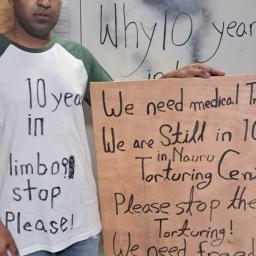 Why 10 year
in
10 yea
in
limbo
stop
Please!
We need medical Tr
We are Still in 10
in Nauru
Torturing Cen
Please stop the
Torturing!
We need freed